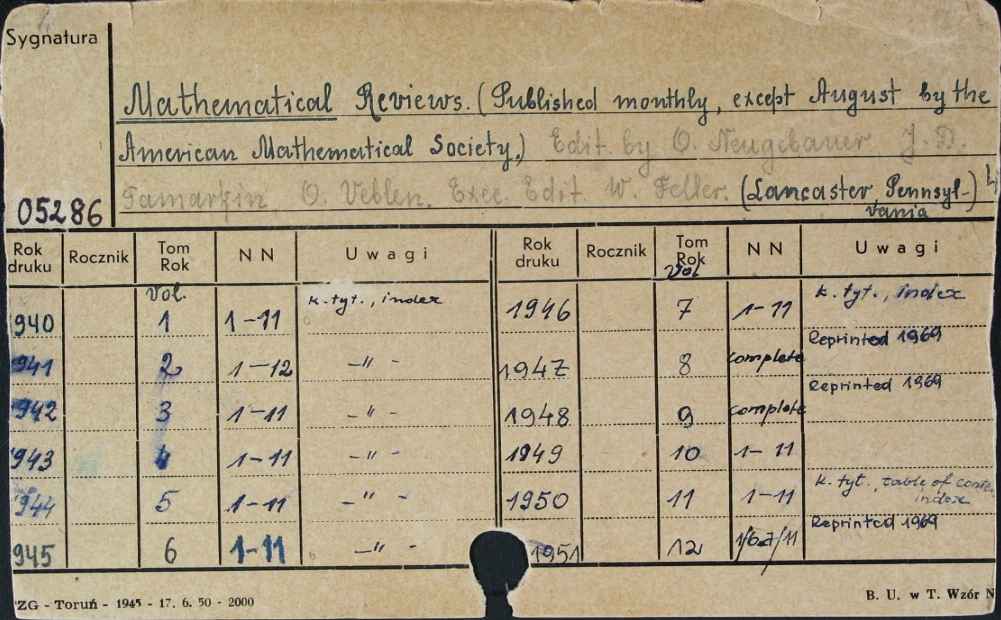 Sygnatura
Mathematical Reviews. (Published monthly, except August by the
American Mathematical Society.) Edit. by O. Neugebauer J. D.
Tamarkin, O. Veblen. Exec. Edit. W. Feller. (Lancaster, Pennsyl-
vania)
05286
Rok druku Rocznik Tom Rok N N Uwagi Rok druku Rocznik Tom Rok N N Uwagi
Vol. Vol
940 1 1-11 k. tyt., index 1946 7 1-11 k. tyt., index
941 2 1-12 -"- 1947 8 complete Reprinted 1969
942 3 1-11 -"- 1948 9 complete Reprinted 1969
943 4 1-11 -"- 1949 10 1-11
944 5 1-11 -"- 1950 11 1-11 k. tyt., table of index
945 6 1-11 -"- 1951 12 Reprinted 1969
ZG - Toruń - 1945 - 17. 6. 50 - 2000 B. U. w T. Wzór N